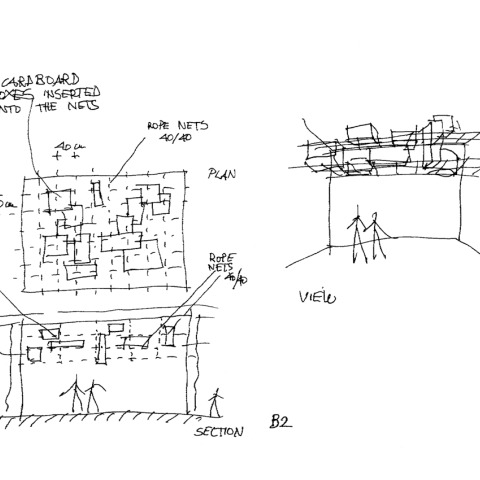 CARDBOARD
OXES INSERTED
NTO THE NETS
40 cm
ROPE NETS
40/40
PLAN
cm
ROPE
NETS
40/40
VIEW
SECTION
B2